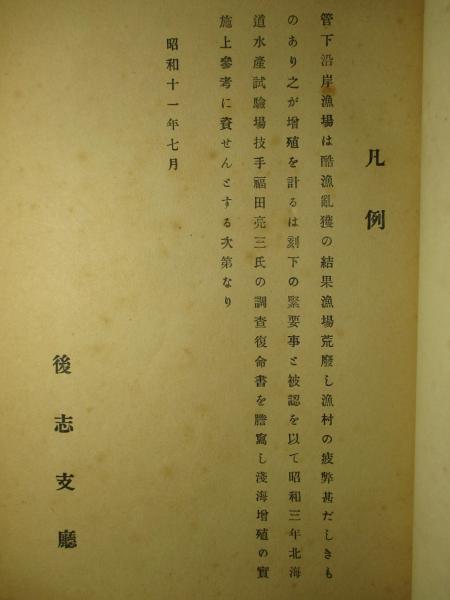 凡例
管下沿岸漁場は酷漁亂獲の結果漁場荒廢し漁村の疲弊甚だしきも
のあり之が增殖を計るは刻下の緊要事と被認を以て昭和三年北海
道水產試驗場技手福田亮三氏の調査復命書を謄寫し淺海增殖の實
施上參考に資せんとする次第なり
昭和十一年七月
後志支廳